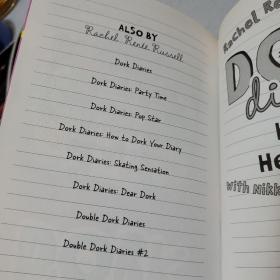 ALSO BY
Rachel Renée Russell
Dork Diaries
Dork Diaries: Party Time
Dork Diaries: Pop Star
Dork Diaries: How to Dork Your Diary
Dork Diaries: Skating Sensation
Dork Diaries: Dear Dork
Double Dork Diaries
Double Dork Diaries #2
Rachel Re
DO
di
He
With Nikk